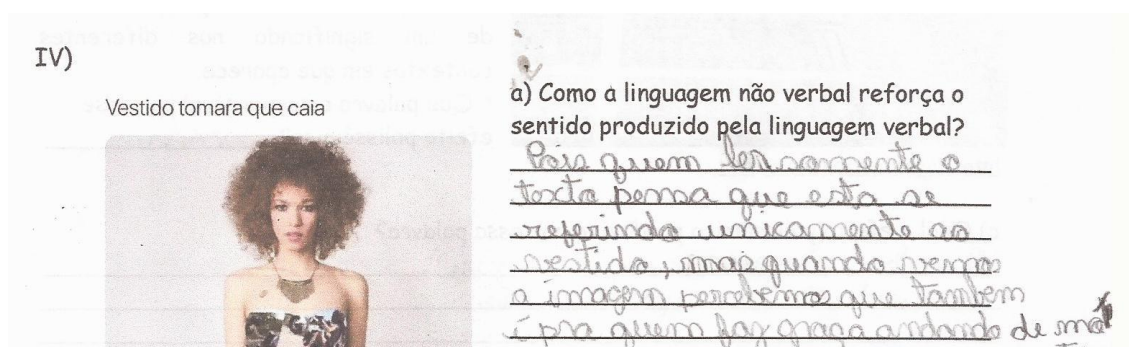 IV)
Vestido tomara que caia
a) Como a linguagem não verbal reforça o
sentido produzido pela linguagem verbal?
Pois quem ler somente o
texto pensa que esta se
referindo unicamente ao
vestido, mas quando vemos
a imagem percebemos que tambem
é pra quem faz graça andando de mot